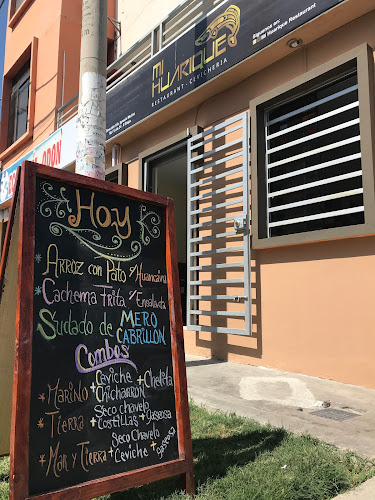 MI
HUARIQUE
RESTAURANT - CEVICHERIA
Síguenos en:
Mi Huarique Restaurant
Hoy
* Arroz con Pato s/Huancaína
* Cachema Frita s/Ensalada
Sudado de MERO
CABRILLON
Combos
* Marino + Ceviche + Chelela
Chicharron
* Tierra + Seco chavelo + gaseosa
Costillas
* Mar y Tierra + Seco Chavelo + gaseosa
Ceviche